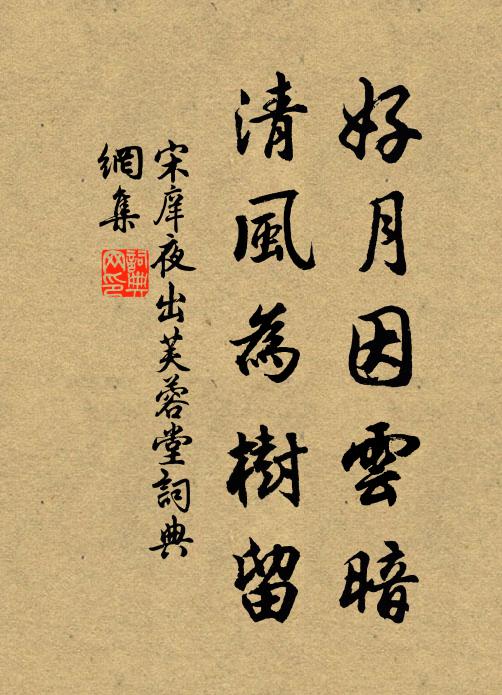 好月因雲暗
清風為樹留
宋庠夜出芙蓉堂詞典
網集
詞典
网印